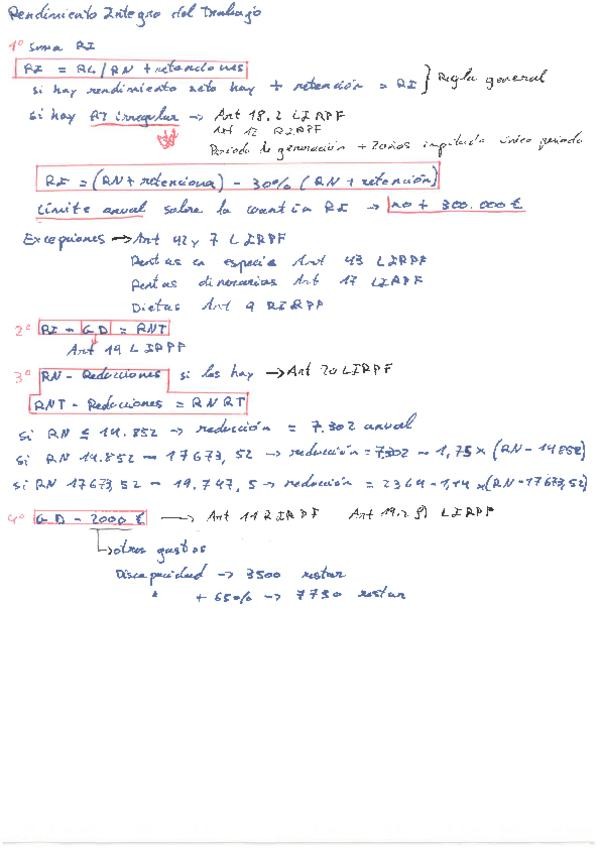 Rendimiento Integro del Trabajo
1º suma RI
RI = RL/RN + retenciones
si hay rendimiento neto hay + retención = RI } Regla general
si hay RT irregular → Art 18.2 LIRPF
Art 12 RIRPF
Periodo de generación + 2 años imputado único periodo
RI = (RN + retenciones) - 30% (RN + retención)
Límite anual sobre la cuantía RI → no + 300.000 €
Excepciones → Art 42 y 7 LIRPF
Rentas en especie Art 43 LIRPF
Rentas dinerarias Art 17 LIRPF
Dietas Art 9 RIRPF
2º RI - GD = RNT
Art 19 LIRPF
3º RN - Reducciones si las hay → Art 20 LIRPF
RNT - Reducciones = RNRT
si RN ≤ 14.852 → reducción = 7.302 anual
si RN 14.852 - 17673,52 → reducción = 7302 - 1,75 x (RN - 14852)
si RN 17673,52 - 19.747,5 → reducción = 2364 - 1,14 x (RN - 17673,52)
4º GD - 2000 € → Art 11 RIRPF Art 19.2 f) LIRPF
otros gastos
Discapacidad → 3500 restar
" + 65% → 7750 restar